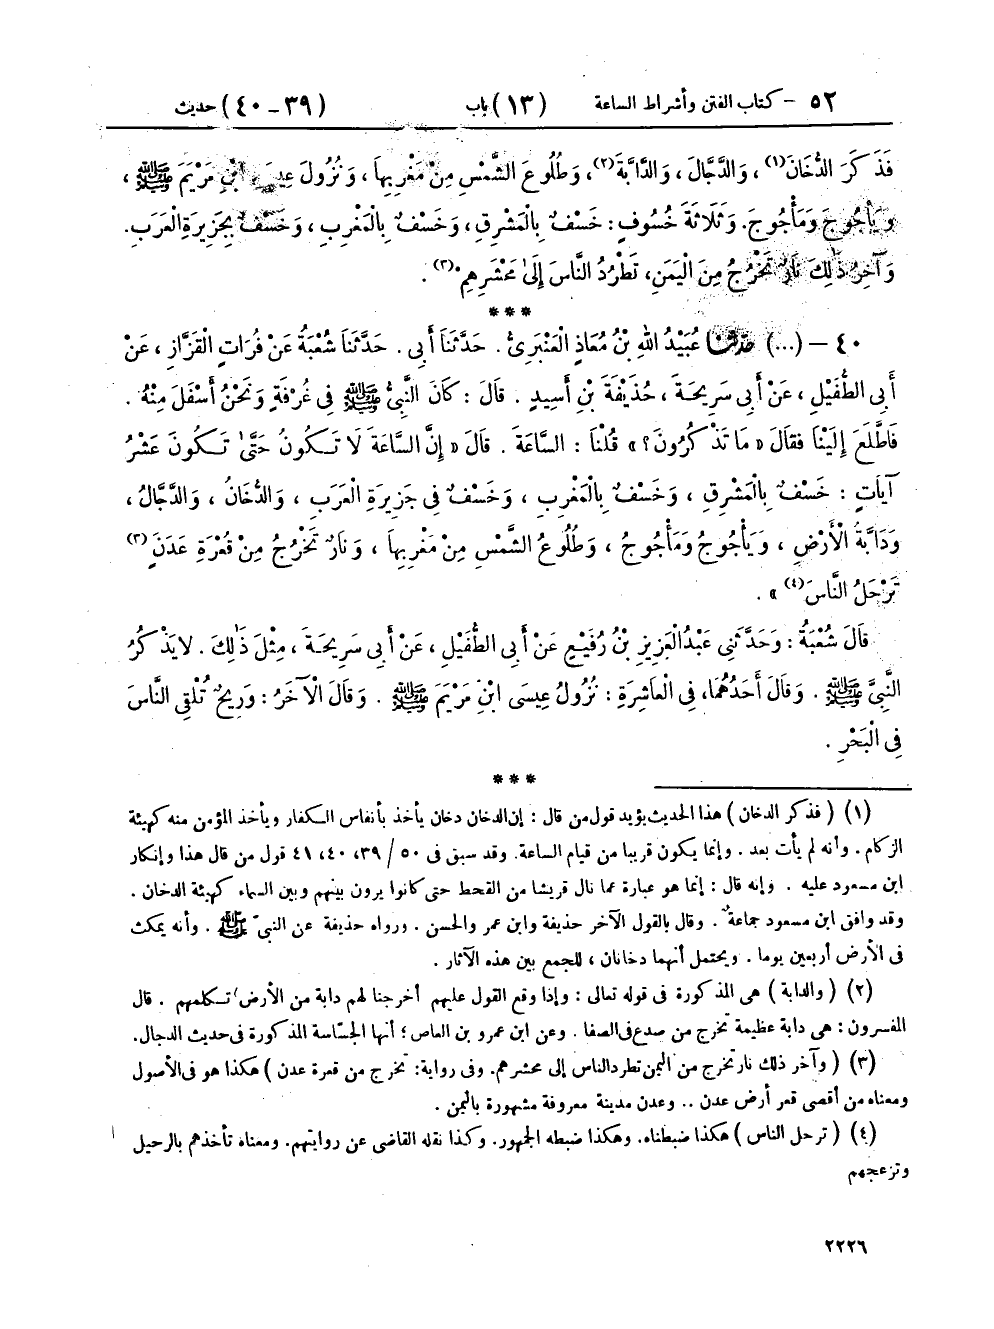 ٥٢ - كتاب الفتن وأشراط الساعة (١٣) باب (٣٩ - ٤٠) حديث
فَذَكَرَ الدُّخَانَ(١)، وَالدَّجَّالَ، وَالدَّابَّةَ(٢)، وَطُلُوعَ الشَّمْسِ مِنْ مَغْرِبِهَا، وَنُزُولَ عِيسَى ابْنِ مَرْيَمَ ﷺ،
وَيَأْجُوجَ وَمَأْجُوجَ. وَثَلَاثَةَ خُسُوفٍ: خَسْفٌ بِالْمَشْرِقِ، وَخَسْفٌ بِالْمَغْرِبِ، وَخَسْفٌ بِجَزِيرَةِ الْعَرَبِ.
وَآخِرُ ذٰلِكَ نَارٌ تَخْرُجُ مِنَ الْيَمَنِ، تَطْرُدُ النَّاسَ إِلَىٰ مَحْشَرِهِمْ(٣).
***
٤٠ - (...) حَدَّثَنَا عُبَيْدُ اللهِ بْنُ مُعَاذٍ الْعَنْبَرِيُّ. حَدَّثَنَا أَبِي. حَدَّثَنَا شُعْبَةُ عَنْ فُرَاتٍ الْقَزَّازِ، عَنْ
أَبِي الطُّفَيْلِ، عَنْ أَبِي سَرِيحَةَ، حُذَيْفَةَ بْنِ أَسِيدٍ. قَالَ: كَانَ النَّبِيُّ ﷺ فِي غُرْفَةٍ وَنَحْنُ أَسْفَلَ مِنْهُ.
فَاطَّلَعَ إِلَيْنَا فَقَالَ «مَا تَذْكُرُونَ؟» قُلْنَا: السَّاعَةَ. قَالَ «إِنَّ السَّاعَةَ لَا تَكُونُ حَتَّىٰ تَكُونَ عَشْرُ
آيَاتٍ: خَسْفٌ بِالْمَشْرِقِ، وَخَسْفٌ بِالْمَغْرِبِ، وَخَسْفٌ فِي جَزِيرَةِ الْعَرَبِ، وَالدُّخَانُ، وَالدَّجَّالُ،
وَدَابَّةُ الْأَرْضِ، وَيَأْجُوجُ وَمَأْجُوجُ، وَطُلُوعُ الشَّمْسِ مِنْ مَغْرِبِهَا، وَنَارٌ تَخْرُجُ مِنْ قُعْرَةِ عَدَنَ(٣)
تَرْحَلُ النَّاسَ(٤)».
قَالَ شُعْبَةُ: وَحَدَّثَنِي عَبْدُ الْعَزِيزِ بْنُ رُفَيْعٍ عَنْ أَبِي الطُّفَيْلِ، عَنْ أَبِي سَرِيحَةَ، مِثْلَ ذٰلِكَ. لَا يَذْكُرُ
النَّبِيَّ ﷺ. وَقَالَ أَحَدُهُمَا، فِي الْعَاشِرَةِ: نُزُولُ عِيسَى ابْنِ مَرْيَمَ ﷺ. وَقَالَ الْآخَرُ: وَرِيحٌ تُلْقِي النَّاسَ
فِي الْبَحْرِ.
***
(١) (فذكر الدخان) هذا الحديث يؤيد قول من قال: إن الدخان دخان يأخذ بأنفاس الكفار ويأخذ المؤمن منه كهيئة
الزكام. وأنه لم يأت بعد. وإنما يكون قريبا من قيام الساعة. وقد سبق فى ٥٠/٣٩، ٤٠، ٤١ قول من قال هذا وإنكار
ابن مسعود عليه. وإنه قال: إنما هو عبارة عما نال قريشا من القحط حتى كانوا يرون بينهم وبين السماء كهيئة الدخان.
وقد وافق ابن مسعود جماعةٌ. وقال بالقول الآخر حذيفة وابن عمر والحسن. ورواه حذيفة عن النبيّ ﷺ. وأنه يمكث
فى الأرض أربعين يوما. ويحتمل أنهما دخانان، للجمع بين هذه الآثار.
(٢) (والدابة) هى المذكورة فى قوله تعالى: وإذا وقع القول عليهم أخرجنا لهم دابة من الأرض تكلمهم. قال
المفسرون: هى دابة عظيمة تخرج من صدع فى الصفا. وعن ابن عمرو بن العاص؛ أنها الجسّاسة المذكورة فى حديث الدجال.
(٣) (وآخر ذلك نار تخرج من اليمن تطرد الناس إلى محشرهم. وفى رواية: تخرج من قعرة عدن) هكذا هو فى الأصول
ومعناه من أقصى قعر أرض عدن.. وعدن مدينة معروفة مشهورة باليمن.
(٤) (ترحل الناس) هكذا ضبطناه. وهكذا ضبطه الجمهور. وكذا نقله القاضى عن روايتهم. ومعناه تأخذهم بالرحيل
وتزعجهم
٢٢٢٦